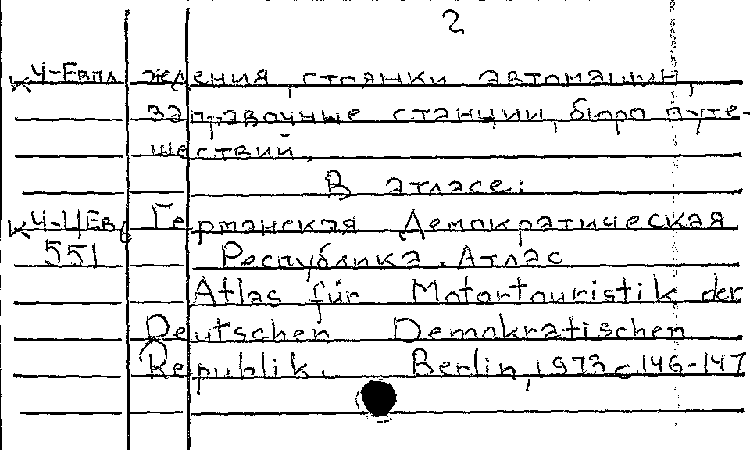 2
К Ч-Евпл ждения, стоянки автомашин,
заправочные станции, бюро путе-
шествий.
В атласе:
К Ч-ЦЕв Германская Демократическая
551 Республика. Атлас
Atlas für Motortouristik der
Deutschen Demokratischen
Republik. Berlin, 1973 с. 146-147